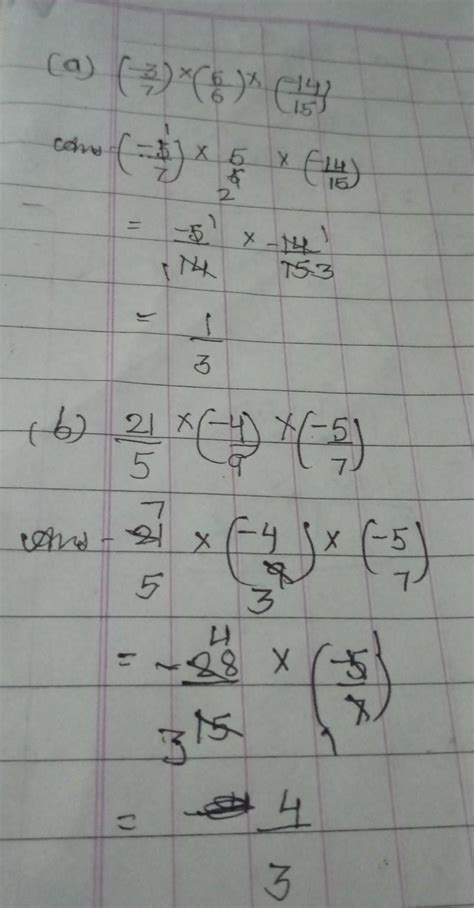 (a) (-3/7) × (5/6) × (-14/15)
ans (-3/7) 1 × 5/6 2 × (-14/15)
= -5/14 1 1 × -14/15 1 3
= 1/3
(b) 21/5 × (-4/9) × (-5/7)
ans - 21/5 7 × (-4/9) 3 × (-5/7)
= -28/15 4 3 × (-5/7) 1 1
= 4/3